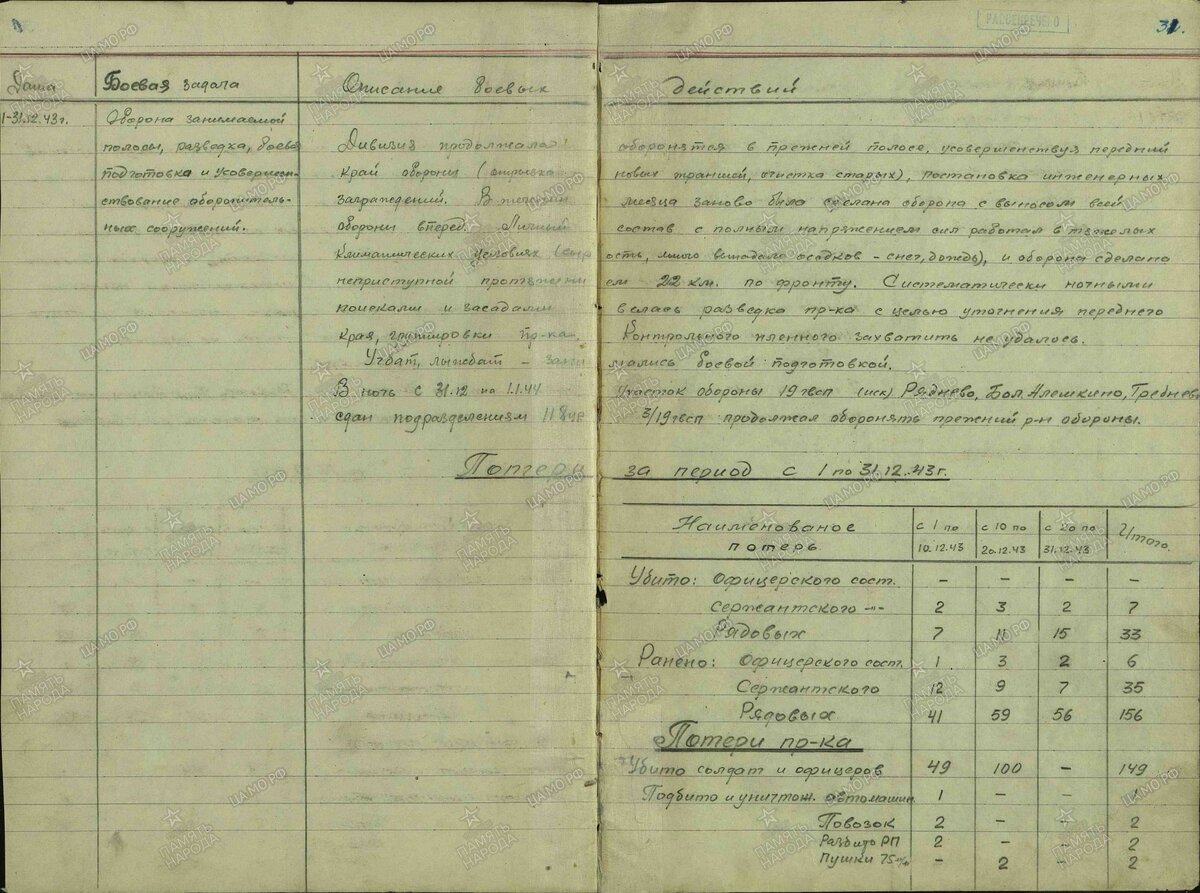 РАССЕКРЕЧЕНО
31.
Дата Боевая задача Описание боевых действий
1-31.12.43г. Оборона занимаемой
полосы, разведка, боевая Дивизия продолжала обороняться в прежней полосе, усовершенствуя передний
подготовка и усовершен- край обороны (отрывка новых траншей, очистка старых), постановка инженерных
ствование оборонитель- заграждений. В течении месяца заново была сделана оборона с выносом всей
ных сооружений. обороны вперед. Личный состав с полным напряжением сил работал в тяжелых
климатических условиях ость, много выпадало осадков - снег, дождь), и оборона сделана
неприступной протяжением 22 км. по фронту. Систематически ночными
поисками и засадами велась разведка пр-ка с целью уточнения переднего
края, группировки пр-ка. Контрольного пленного захватить не удалось.
Учбат, лыжбат - занимались боевой подготовкой.
В ночь с 31.12 на 1.1.44 участок обороны 19 гвсп (иск) Ряднево, Бол. Алешкино, Требнев
сдан подразделениям 118 ур 3/19 гвсп продолжал оборонять прежний р-н обороны.
Потери за период с 1 по 31.12.43г.
Наименованое потерь с 1 по 10.12.43 с 10 по 20.12.43 с 20 по 31.12.43 Итого.
Убито: Офицерского сост. - - - -
Сержантского -"- 2 3 2 7
Рядовых 7 11 15 33
Ранено: Офицерского сост. 1 3 2 6
Сержантского 12 9 7 35
Рядовых 41 59 56 156
Потери пр-ка
Убито солдат и офицеров 49 100 - 149
Подбито и уничтож. автомашин 1 - - 1
Повозок 2 - - 2
Разбито РП 2 - - 2
Пушки 75 м/м - 2 - 2